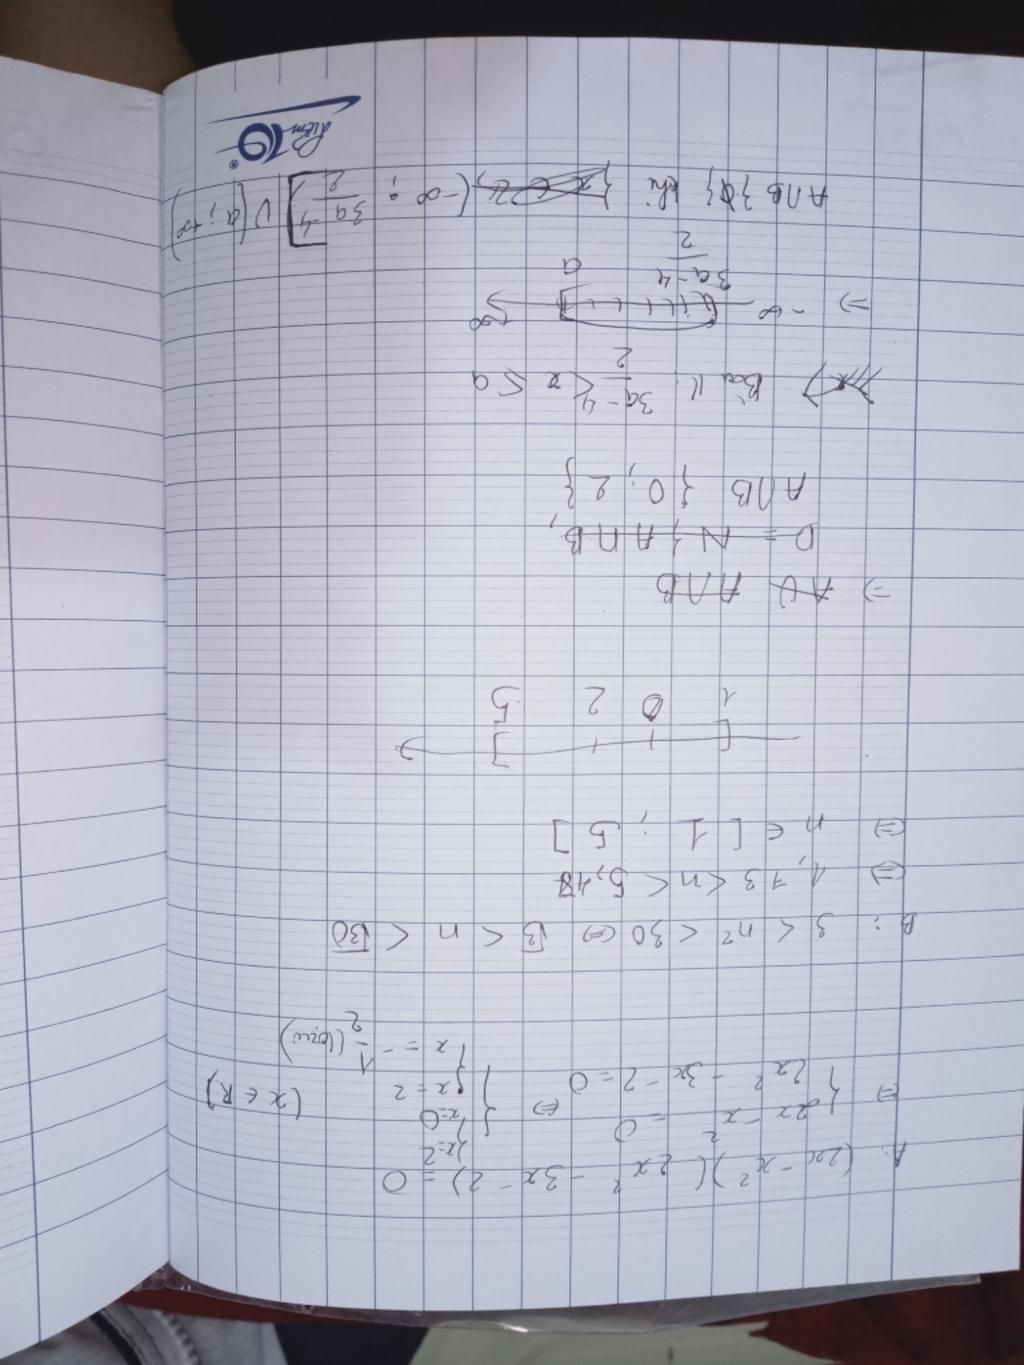 A: (2x - x²)(2x² - 3x - 2) = 0
⇔ { 2x - x² = 0 ⇔ { { x=2 x=0 (x ∈ R)
{ 2x² - 3x - 2 = 0 { x = 2
x = -1/2 (loại)
B: 3 < n² < 30 ⇔ √3 < n < √30
⇔ 1,73 < n < 5,47
⇔ n ∈ [1 ; 5]
1 0 2 5
⇒ A U A ∩ B
D = N ; A ∩ B,
A ∩ B { 0; 2 }
Bài 11: (3a-4)/2 < x ≤ a
⇒ -∞ +∞
(3a-4)/2 a
A∩B } ∅ } khi (-∞ ; (3a-4)/2] U (a; +∞)
điểm 10